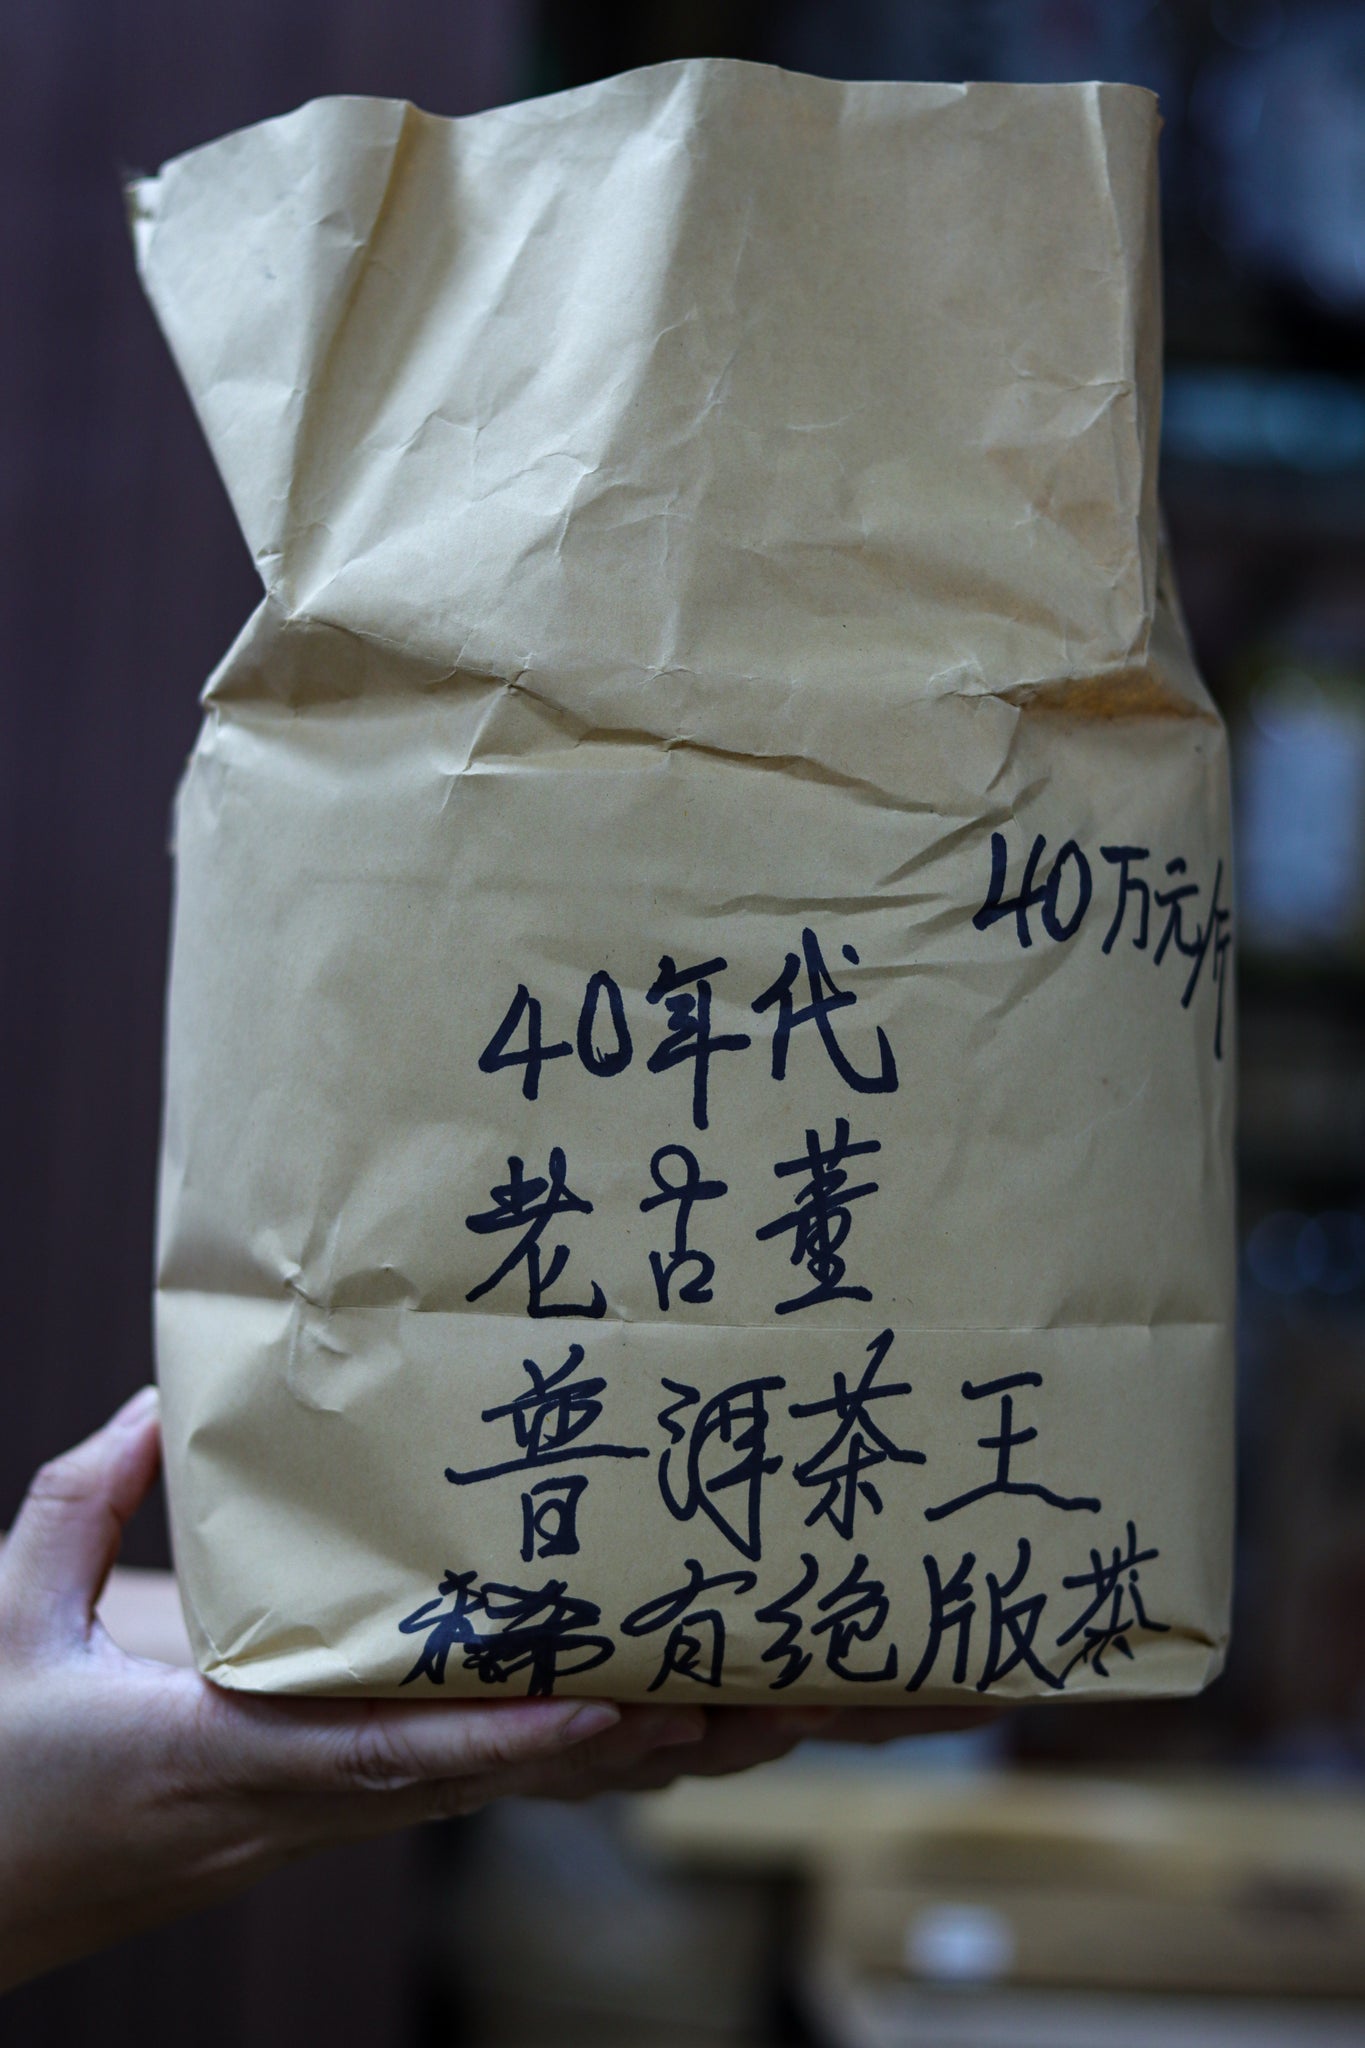 40万元/斤
40年代
老古董
普洱茶王
稀有绝版茶